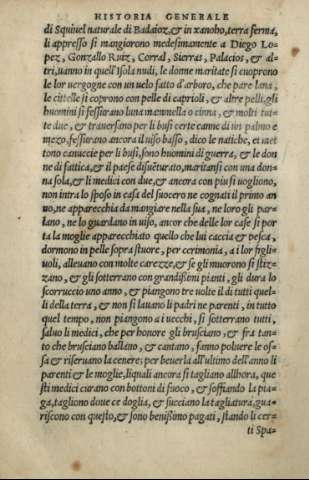 HISTORIA GENERALE
di Squiuel naturale di Badaioz, & in xanoho, terra ferma,
li appresso si mangiorono medesimamente a Diego Lo-
pez, Gonzallo Ruiz, Corral, Sierras, Palacios, & al-
tri, uanno in quell'Isola nudi, le donne maritate si cuoprono
le lor uergogne con un uelo fatto d'arboro, che pare lana,
le cittelle si coprono con pelle di caprioli, & altre pelli, gli
huomini si fessirano luna mannella o cinna, & molti tut-
te due, & trauersano per li busi certe canne di un palmo e
mezo, fessirano ancora il uiso basso, dico le natiche, et met
tono canuccie per li busi, sono huomini di guerra, & le don
ne di fattica, & il paese disuēturato, maritansi con una don-
na sola, & li medici con due, & ancora con piu si uogliono,
non intra lo sposo in casa del suocero ne cognati il primo an
no, ne apparecchia da mangiare nella sua, ne loro gli par-
lano, ne lo guardano in uiso, ancor che delle lor case si por
ta la moglie apparecchiato quello che lui caccia & pesca,
dormono in pelle sopra stuore, per cerimonia, a i lor figli-
uoli, alleuano con molte carezze, & se gli muorono si stiz-
zano, & gli sotterrano con grandissimi pianti, gli dura lo
scorruccio uno anno, & piangono tre uolte il di tutti quel-
li della terra, & non si lauano li padri ne parenti, in tutto
quel tempo, non piangono a i uecchi, si sotterrano tutti,
saluo li medici, che per honore gli brusciano, & fra tan-
to che brusciano ballano, & cantano, fanno poluere le os-
sa & riseruano la cenere, per beuerla all'ultimo dell'anno li
parenti & le moglie, li quali ancora si tagliano allhora, que
sti medici curano con bottoni di fuoco, & soffiando la pia-
ga, tagliono doue ce doglia, & succiano la tagliatura, gua-
riscono con questo, & sono benissimo pagati, stando li cer-
ti Spa-